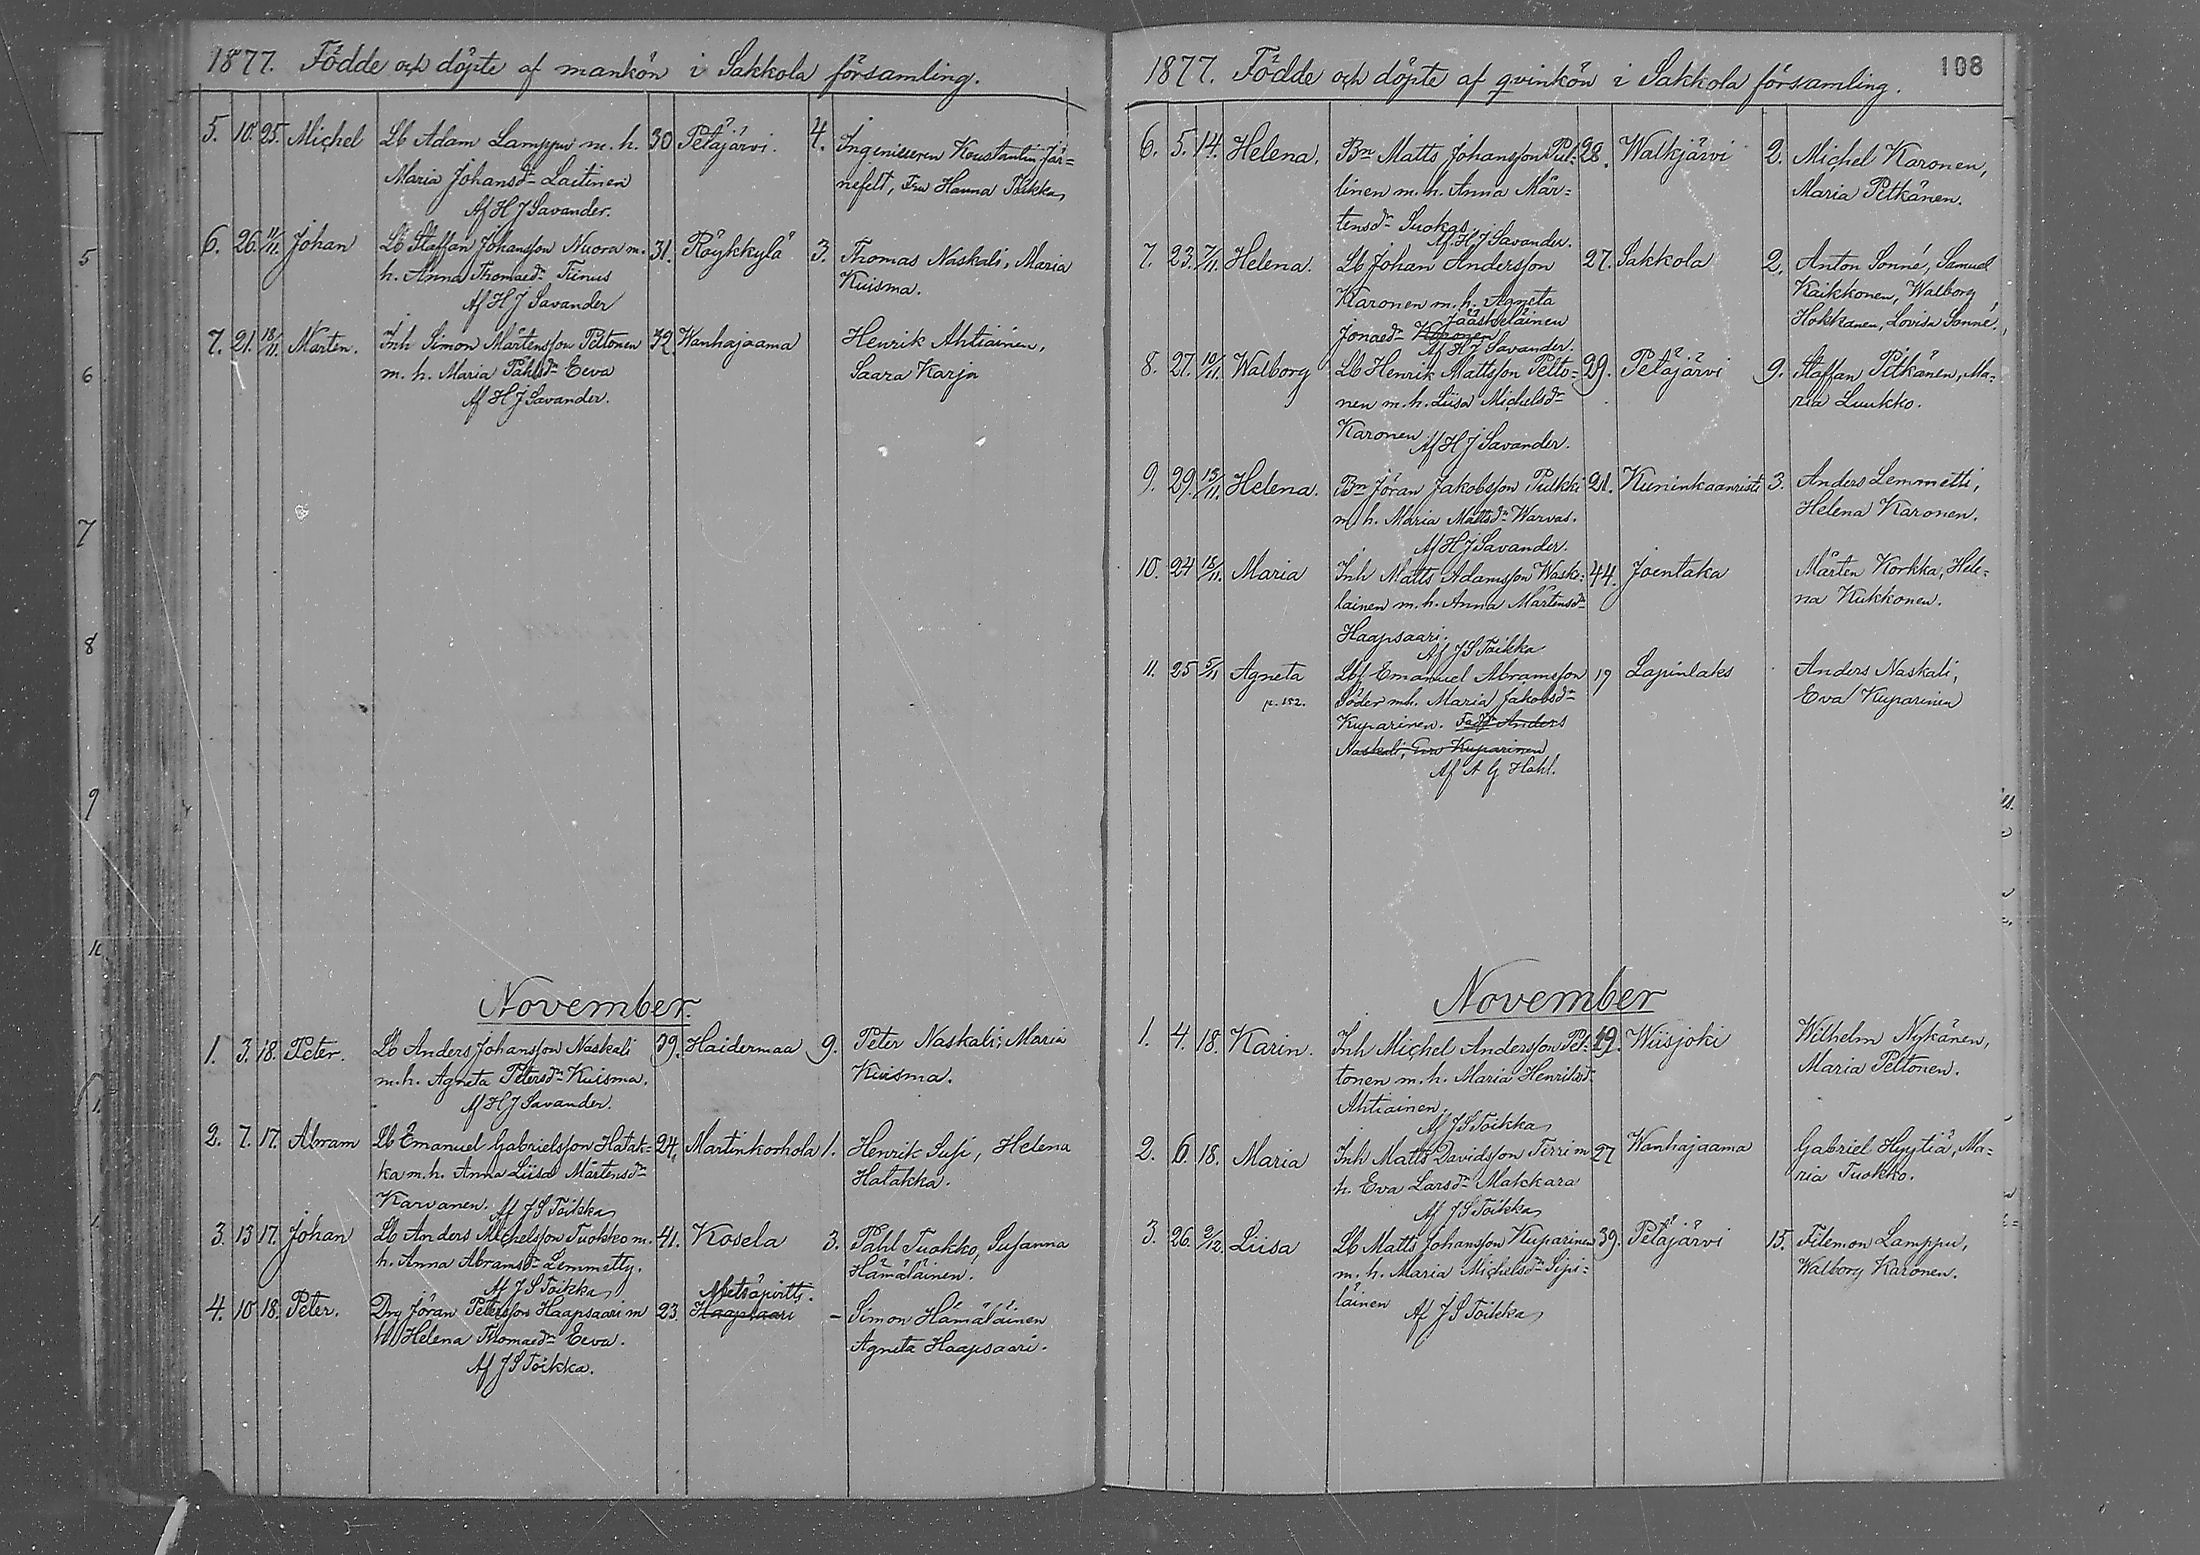 1877. Födde och döpte af mankön i Sakkola församling.
5. 10. 25. Michel Lb Adam Lamppu m. h. 30 Petäjärvi. 4. Ingenieuren Konstantin Jär=
Maria Johansdr Laitinen nefelt, Fru Hanna Toikka
Af H J Savander.
6. 26. 11/11. Johan Lb Staffan Johansson Nuora m. 31. Röykkylä 3. Thomas Naskali, Maria
h. Anna Thomaedr Tiinus Kuisma.
Af H J Savander
7. 21. 18/11. Mårten. Inh Simon Mårtensson Peltonen 32. Wanhajaama Henrik Ahtiainen,
m. h. Maria Påhlsdr Eeva Saara Karja
Af H J Savander.
November.
1. 3. 18. Peter. Lb Anders Johansson Naskali 39. Haidermaa 9. Peter Naskali; Maria
m. h. Agneta Petersdr Kuisma. Kuisma.
Af H J Savander.
2. 7. 17. Abram Lb Emanuel Gabrielsson Hatak= 24. Martinkorhola 1. Henrik Susi, Helena
ka m. h. Anna Liisa Mårtensdr Hatakka.
Karvanen. Af J S Toikka
3. 13 17. Johan Lb Anders Michelsson Tuokko m. 41. Kosela 3. Påhl Tuokko, Susanna
h. Anna Abramsdr Lemmetty. Hämäläinen.
Af J S Toikka
Metsäpirtti.
4. 10 18. Peter. Drg Jöran Petersson Haapsaari m 23. Haapsaari – Simon Hämäläinen
h. Helena Thomaedr Eeva. Agneta Haapsaari.
Af J S Toikka.
5
6
7
8
9
1877. Födde och döpte af qvinkön i Sakkola församling. 108
6. 5. 14. Helena. Bn Matts Johansson Pul= 28. Walkjärvi 2. Michel Karonen,
linen m. h. Anna Mår= Maria Pitkänen.
tensdr Suokas
Af H J Savander.
7. 23. 7/11. Helena. Lb Johan Andersson 27. Sakkola 2. Anton Sonné, Samuel
Karonen m. h. Agneta Kaikkonen, Walborg
Jääskeläinen Hokkanen, Lovisa Sonné.
Jonaedr Karonen
Af H J Savander.
8. 27. 10/11. Walborg Lb Henrik Mattsson Pelto= 29. Petäjärvi 9. Staffan Pitkänen, Ma=
nen m. h. Liisa Michelsdr ria Luukko.
Karonen Af H J Savander.
9. 29. 13/11. Helena. Bn Jöran Jakobsson Pulkki 21. Kuninkaanristi 3. Anders Lemmetti,
m. h. Maria Mattsdr Warvas. Helena Karonen.
Af H J Savander.
10. 24 18/11. Maria Inh Matts Adamsson Waske= 44. Joentaka Mårten Korkka, Hele=
lainen m. h. Anna Mårtensdr na Kukkonen.
Haapsaari.
Af J S Toikka
11. 25 5/11 Agneta Lbf Emanuel Abramsson 19 Lapinlaks Anders Naskali,
p. 152. Söder mh. Maria Jakobsdr Eva Kuparinen
Kuparinen. Fadd. Anders
Naskali, Eva Kuparinen
Af A G Hahl.
November
1. 4. 18. Karin. Inh Michel Andersson Pel= 19. Wiisjoki Wilhelm Nykänen,
tonen m. h. Maria Henriksdr Maria Peltonen.
Ahtiainen.
Af J S Toikka
2. 6. 18. Maria Inh Matts Davidsson Tirri m 27 Wanhajaama Gabriel Hyytiä, Ma=
h. Eva Larsdr Makkara ria Tuokko.
Af J S Toikka
3. 26. 2/12. Liisa Lb Matts Johansson Kuparinen 39. Petäjärvi 15. Filemon Lamppu,
m. h. Maria Michelsdr Sipi= Walborg Karonen.
läinen Af J S Toikka